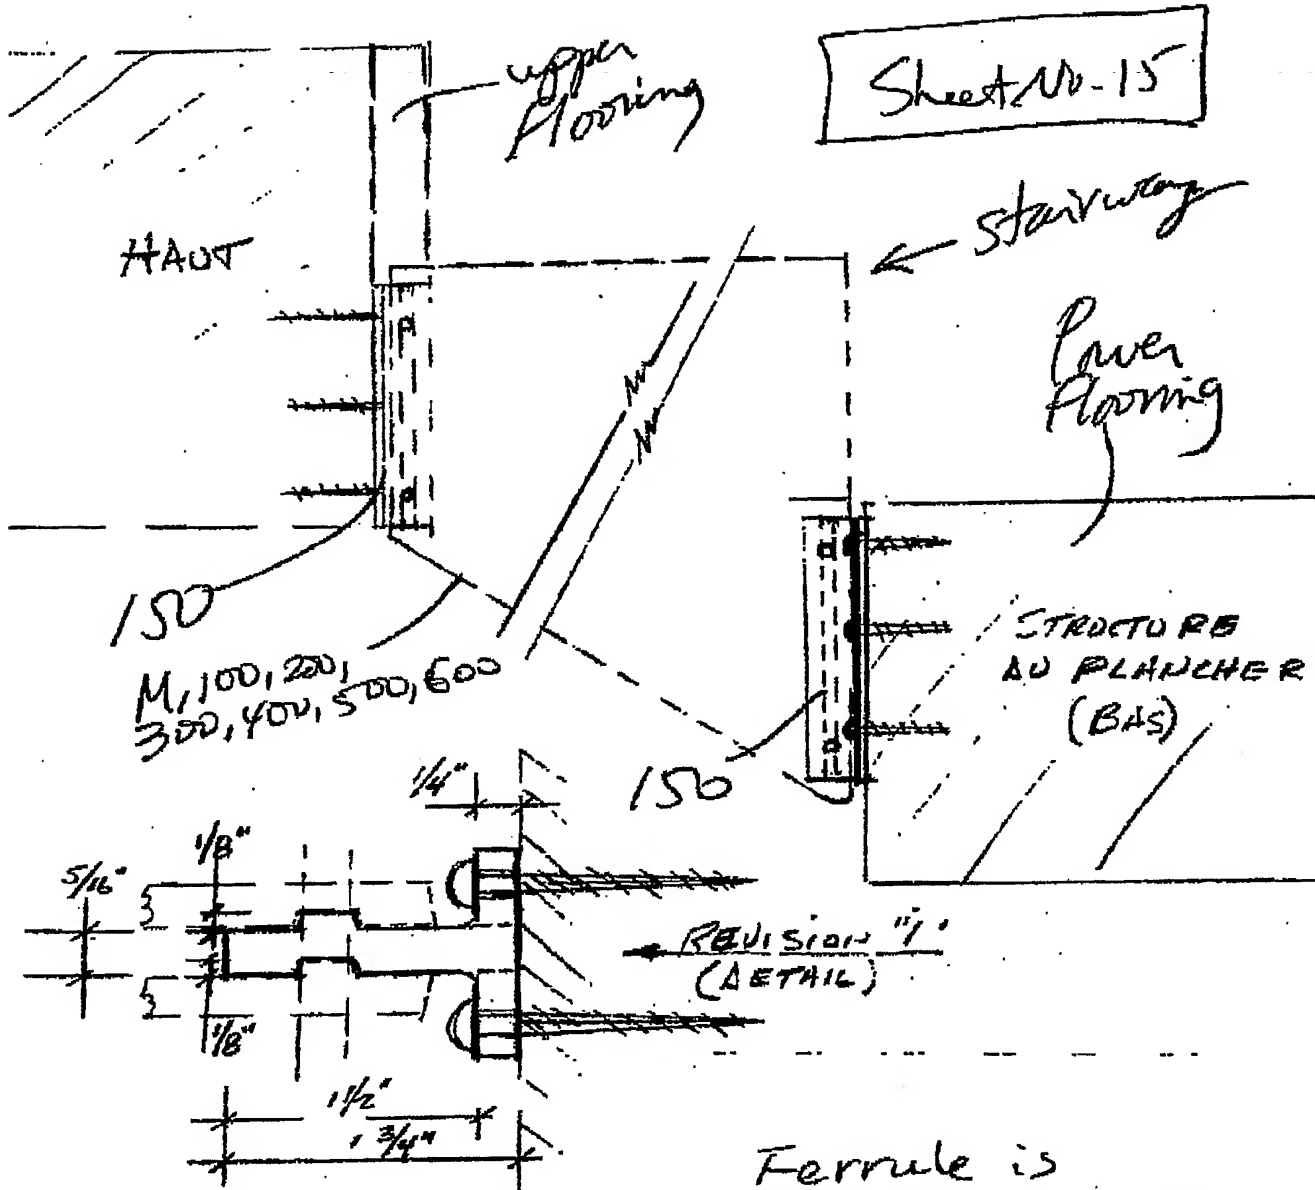 upper
flooring
Sheet No-15
HAUT
stairway
flooring
150
M, 100, 200,
300, 400, 500, 600
STRUCTURE
DU PLANCHER
(BAS)
150
1/4"
1/8"
5/16"
REVISION "1"
(DETAIL)
1/8"
1 1/2"
1 3/4"
Ferrule is